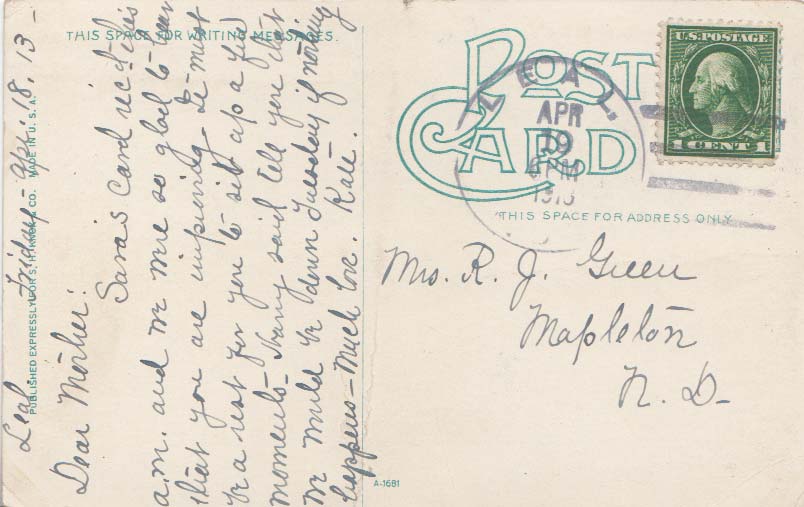 THIS SPACE FOR WRITING MESSAGES.
Leal Friday - Apr. 18. 13 -
Dear Mother:
Sara's card rec'd this
a.m. and we were so glad to hear
that you are improving. It must
be a rest for you to sit up a few
moments - Harry said tell you that
we would be down Tuesday if nothing
happens - Much love. Kate.
PUBLISHED EXPRESSLY FOR S. H. KNOX & CO. MADE IN U. S. A.
POST
CARD
LEAL.
APR
19
6 PM
1913
U.S. POSTAGE
1 CENT 1
THIS SPACE FOR ADDRESS ONLY
Mrs. R. J. Green
Mapleton
N. D.
A-1681